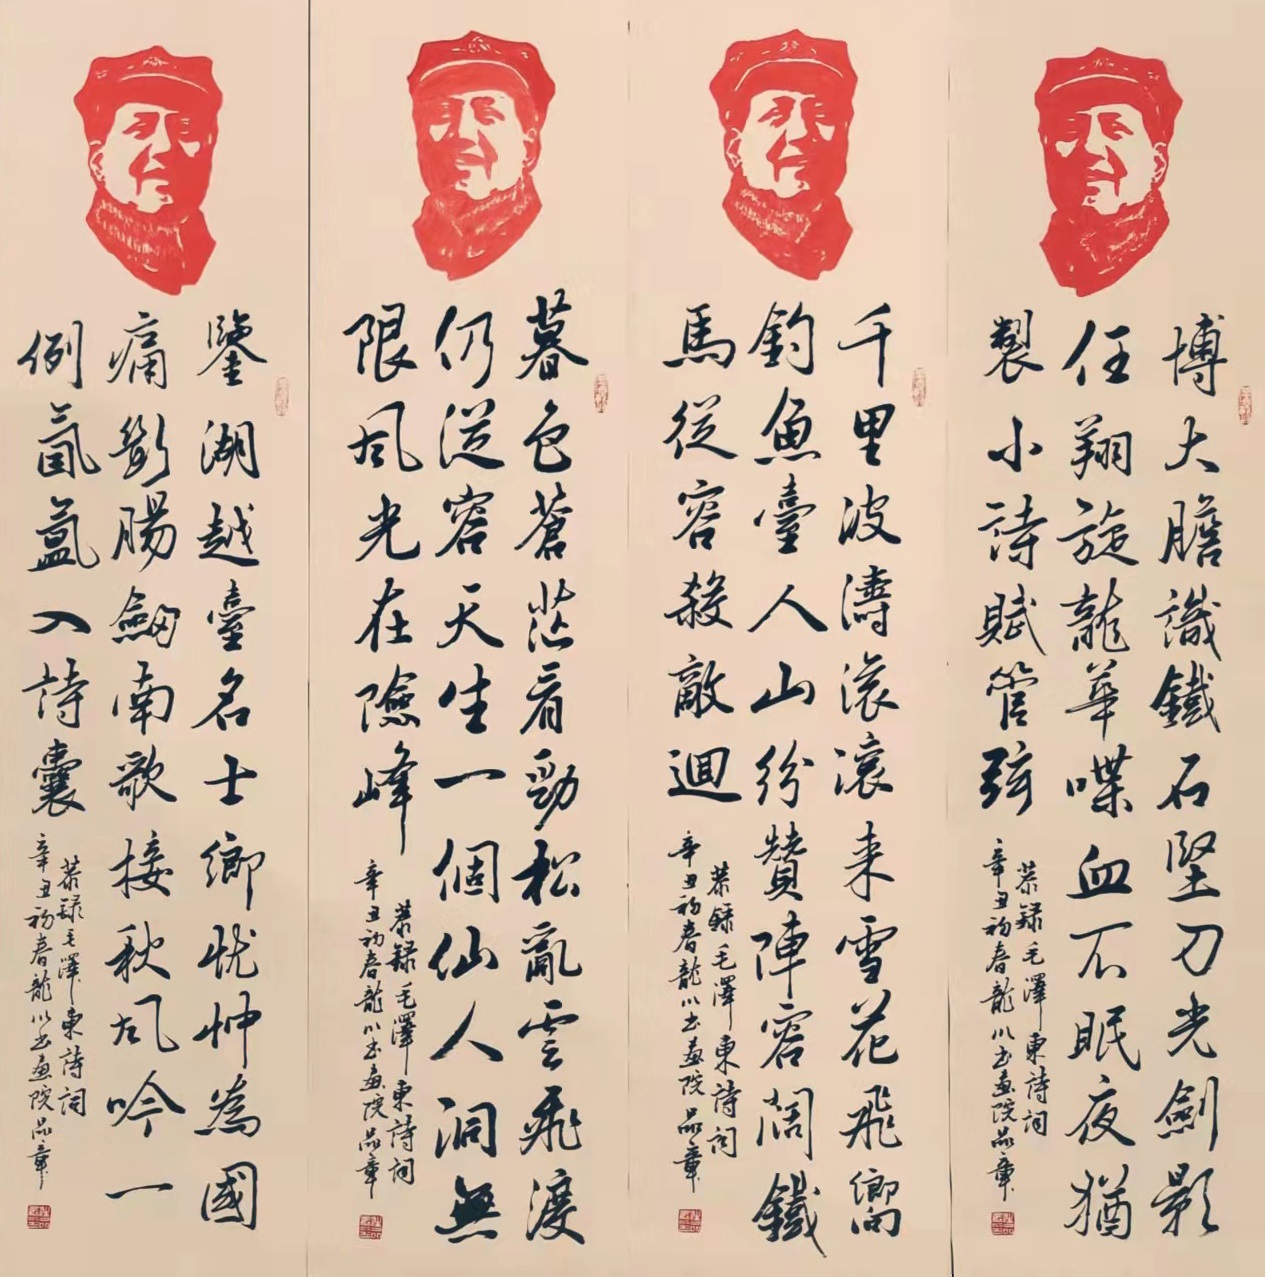 博大膽識鐵石堅刀光劍影
任翔旋龍華喋血不眠夜猶
製小詩賦管弦
恭録毛澤東詩詞
辛丑初春龍川書畫院品章
千里波濤滚滚来雪花飛嚮
釣魚臺人山紛贊陣容闊鐵
馬從容殺敵迴
恭録毛澤東詩詞
辛丑初春龍川書畫院品章
暮色蒼茫看勁松亂雲飛渡
仍從容天生一個仙人洞無
限風光在險峰
恭録毛澤東詩詞
辛丑初春龍川書畫院品章
鑒湖越臺名士鄉忧忡為國
痛斷腸劔南歌接秋風吟一
例氤氳入詩囊
恭録毛澤東詩詞
辛丑初春龍川書畫院品章